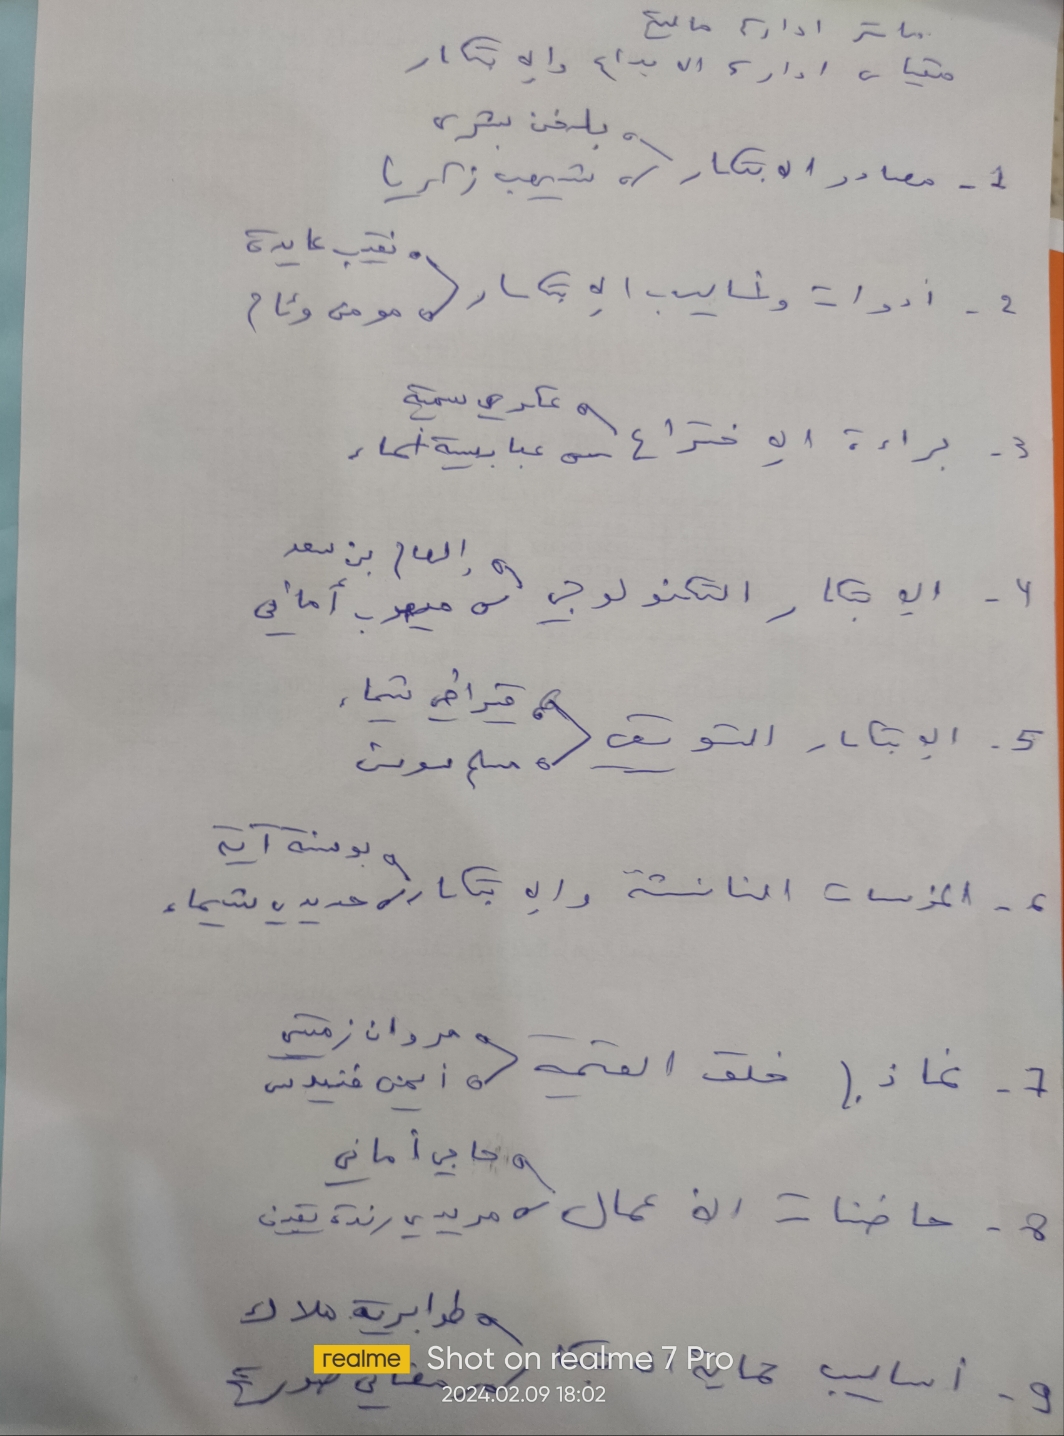 ماستر ادارة مالية
مقياس ادارة الابداع والابتكار
1 - مصادر الابتكار
بلخن بشرى
شيهب زكريا
2 - أدوات وأساليب الابتكار
نقيب عايدة
مومن وئام
3 - براءة الاختراع
عكوجي سمية
عبابسية أسماء
4 - الابتكار التكنولوجي
إلهام بن سعد
ميهوب أماني
5 - الابتكار التسويقي
قيراطي شيماء
مسلم
6 - المؤسسات الناشئة والابتكار
بوسنة آية
حديدي شيماء
7 - نماذج خلق القيمة
مروان زميتي
أيمن
8 - حاضنات الأعمال
حاجي أماني
مريدي رندة يقين
9 - أساليب حماية الابتكار
طوابرية ملاك
realme Shot on realme 7 Pro
2024.02.09 18:02